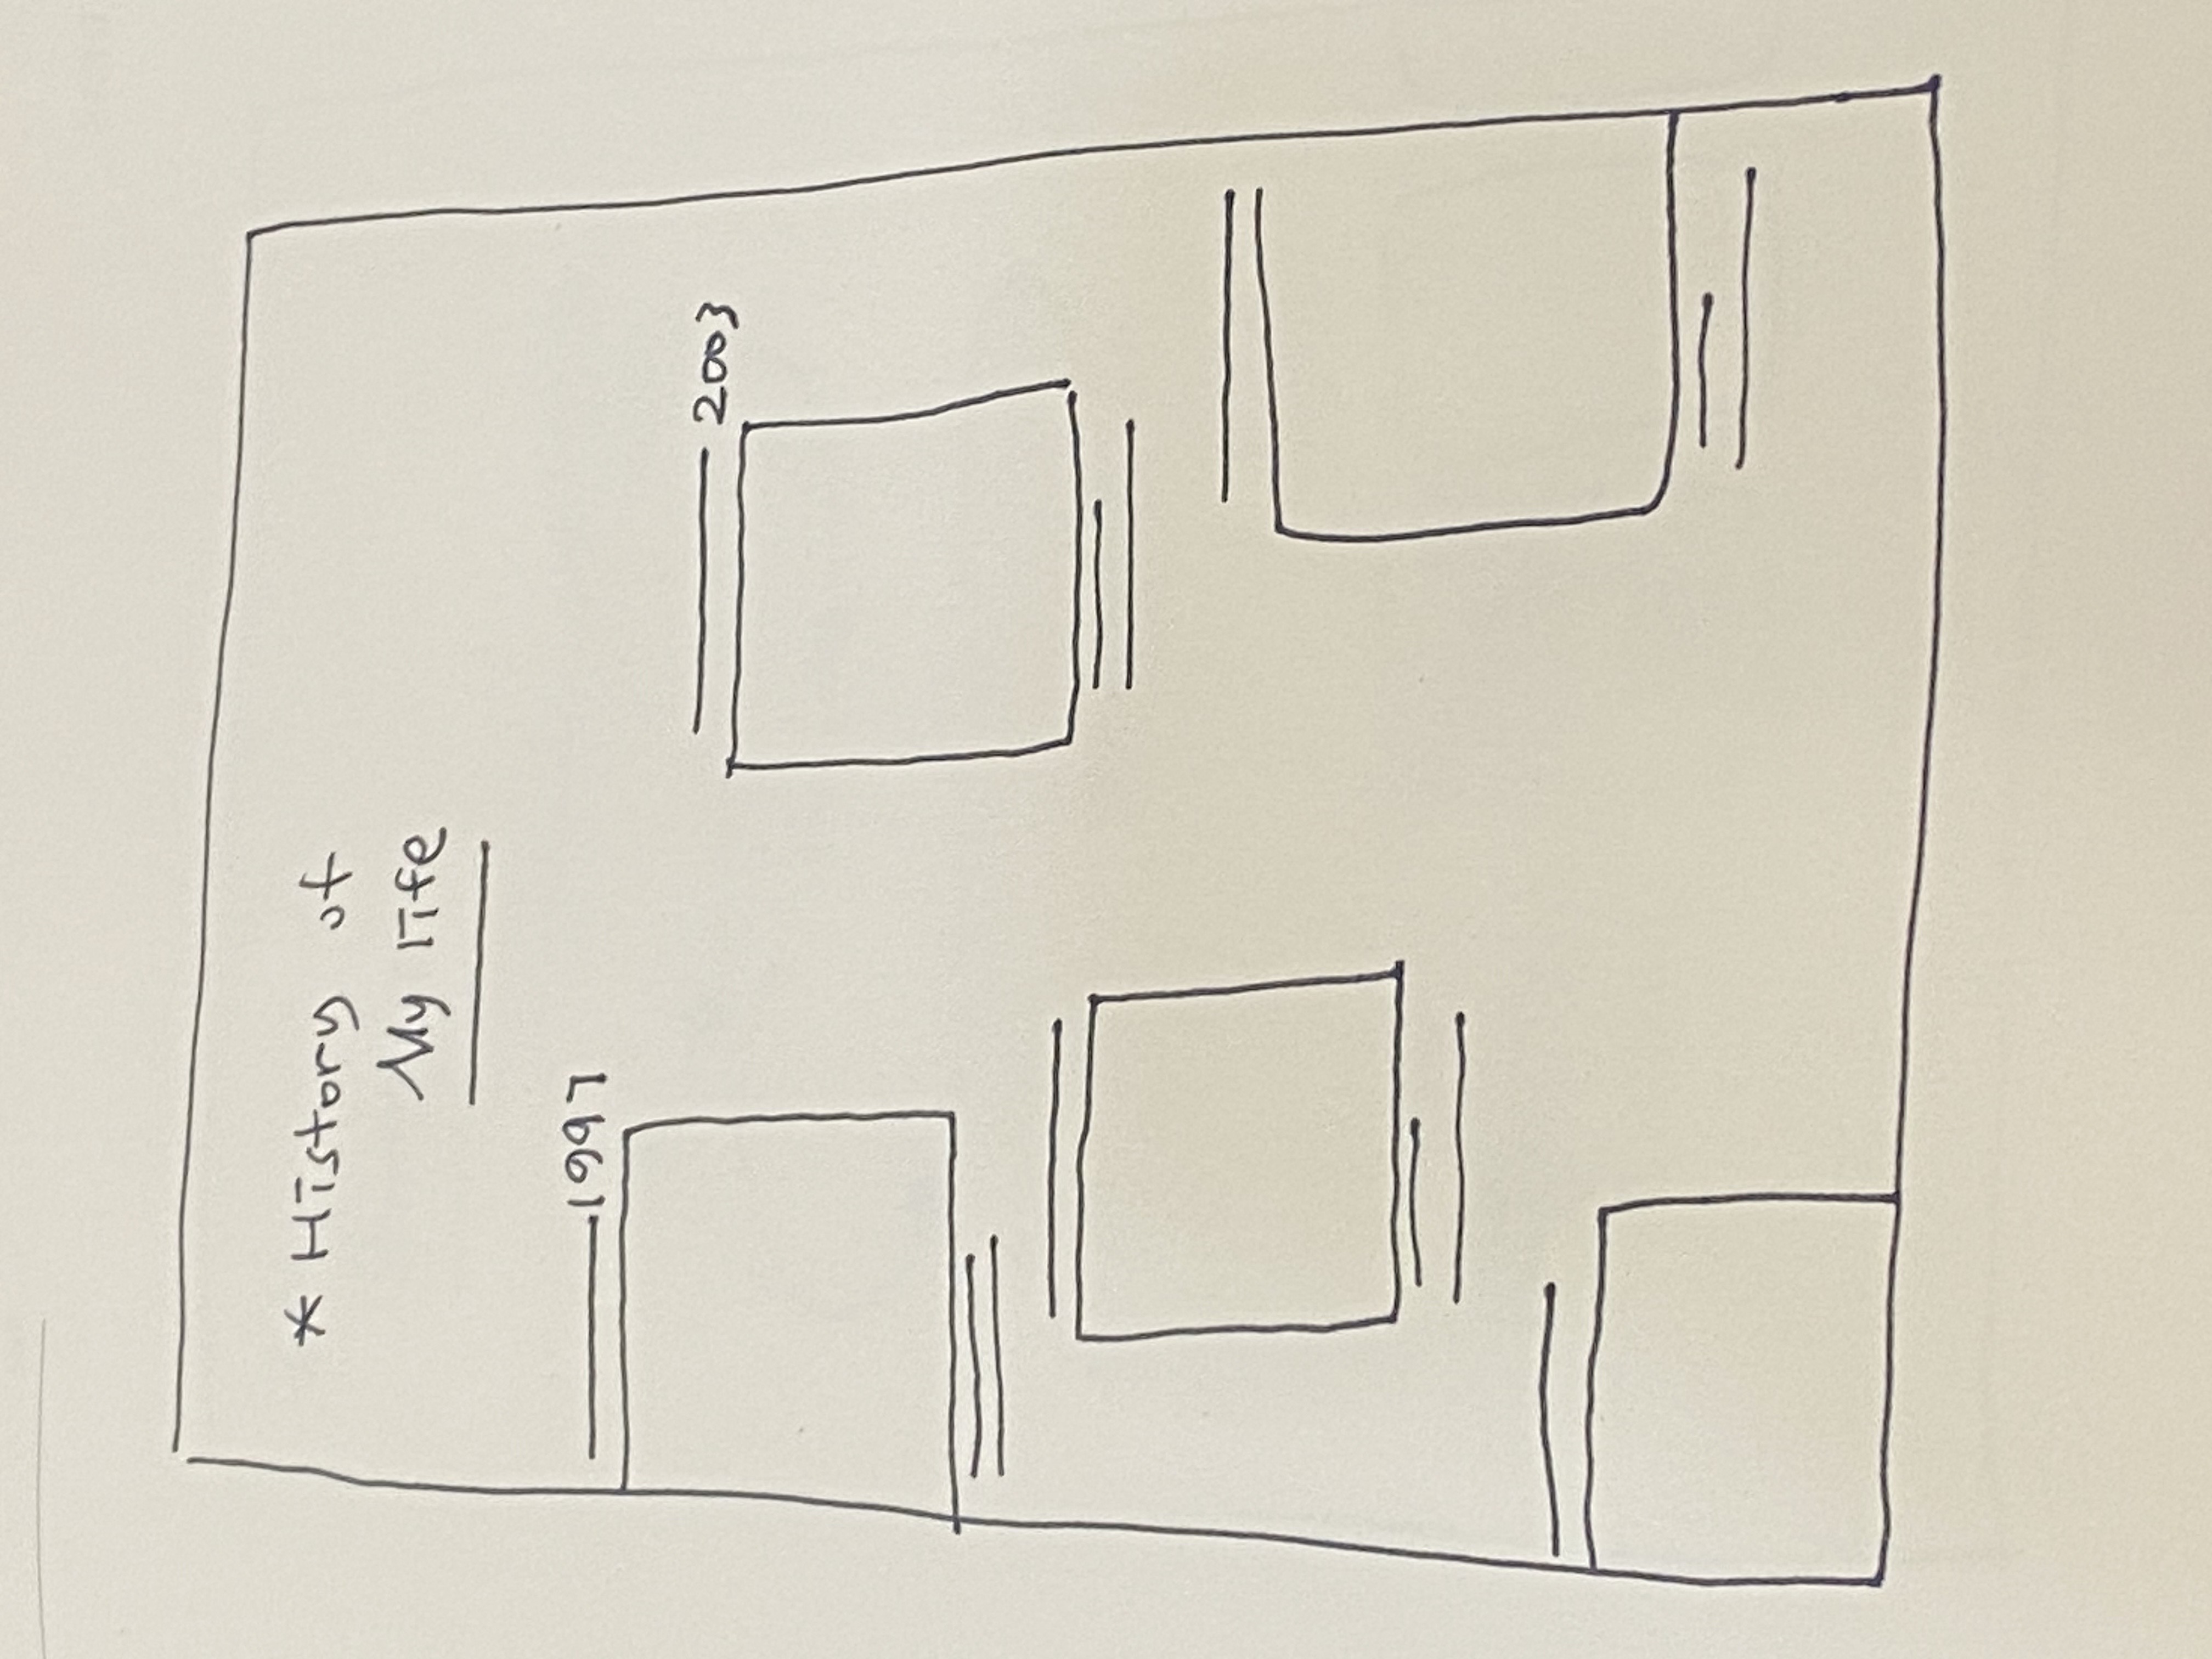 * History of
My life
1997
2003